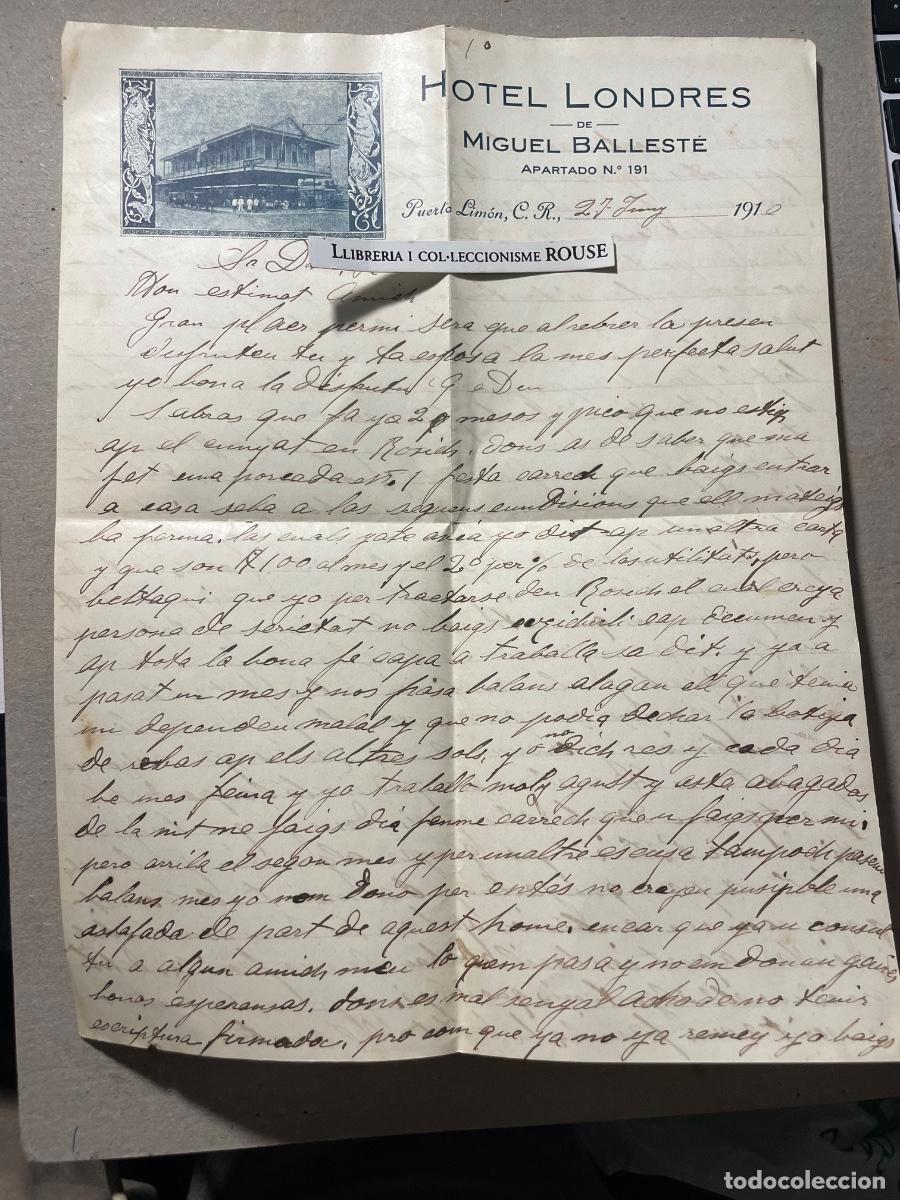 1º
HOTEL LONDRES
DE
MIGUEL BALLESTÉ
APARTADO N.º 191
Puerto Limón, C. R., 27 Juny 1910
LLIBRERIA I COL·LECCIONISME ROUSE
Sr D
Mon estimat Amich
Gran plaer per mi sera que al rebrer la presen
disfruten tu y ta esposa la mes perfecta salut
yo bona la disfrutu G a Deu
Sabras que fa ya 2 mesos y pico que no estig
ap el cunyat en Rosich. dons as de saber que ma
fet una porcada em feu carrech que baigs entrar
a casa seba a las seguens cundisions que ell mateigs
ba firma. las cuals ya te abia yo dit ap unaltra carta
y que son $100 al mes y el 20 per % de las utilitats, pero
bettaqui que yo per tractarse den Rosich el cual creya
persona de serietat no baigs ecsichirli cap documen y
ap tota la bona fé capa a traballa sa dit. y ya a
pasat un mes y nos pasa balans alagan ell que tenia
un dependen malal y que no podia dechar la botiga
de robas ap els altres sols, y yo no dich res y cada dia
be mes feina y yo traballo mol agust y asta abagadas
de la nit ne faigs dia fenme carrech que u faigs per mi.
pero arriba el segon mes y per unaltre escusa tampoch pasem
balans mes yo nom dono per entés no creyen pusipble una
astafada de part de aquest home. encar que ya u consul
tu a algun amich meu lo quem pasa y no em donan gaires
bonas esperansas. dons es mal senyal acho de no tenir
escriptura firmada. pro com que ya no ya remey yo baigs
todocoleccion